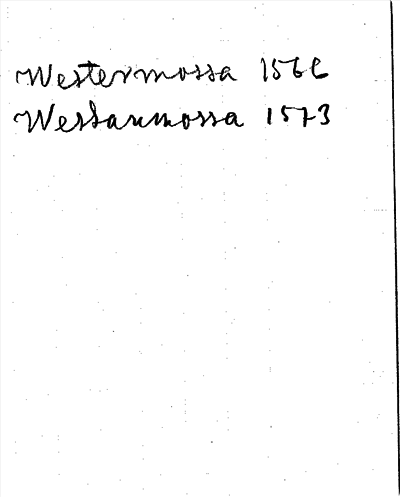 Westermossa 1562
Westanmossa 1573